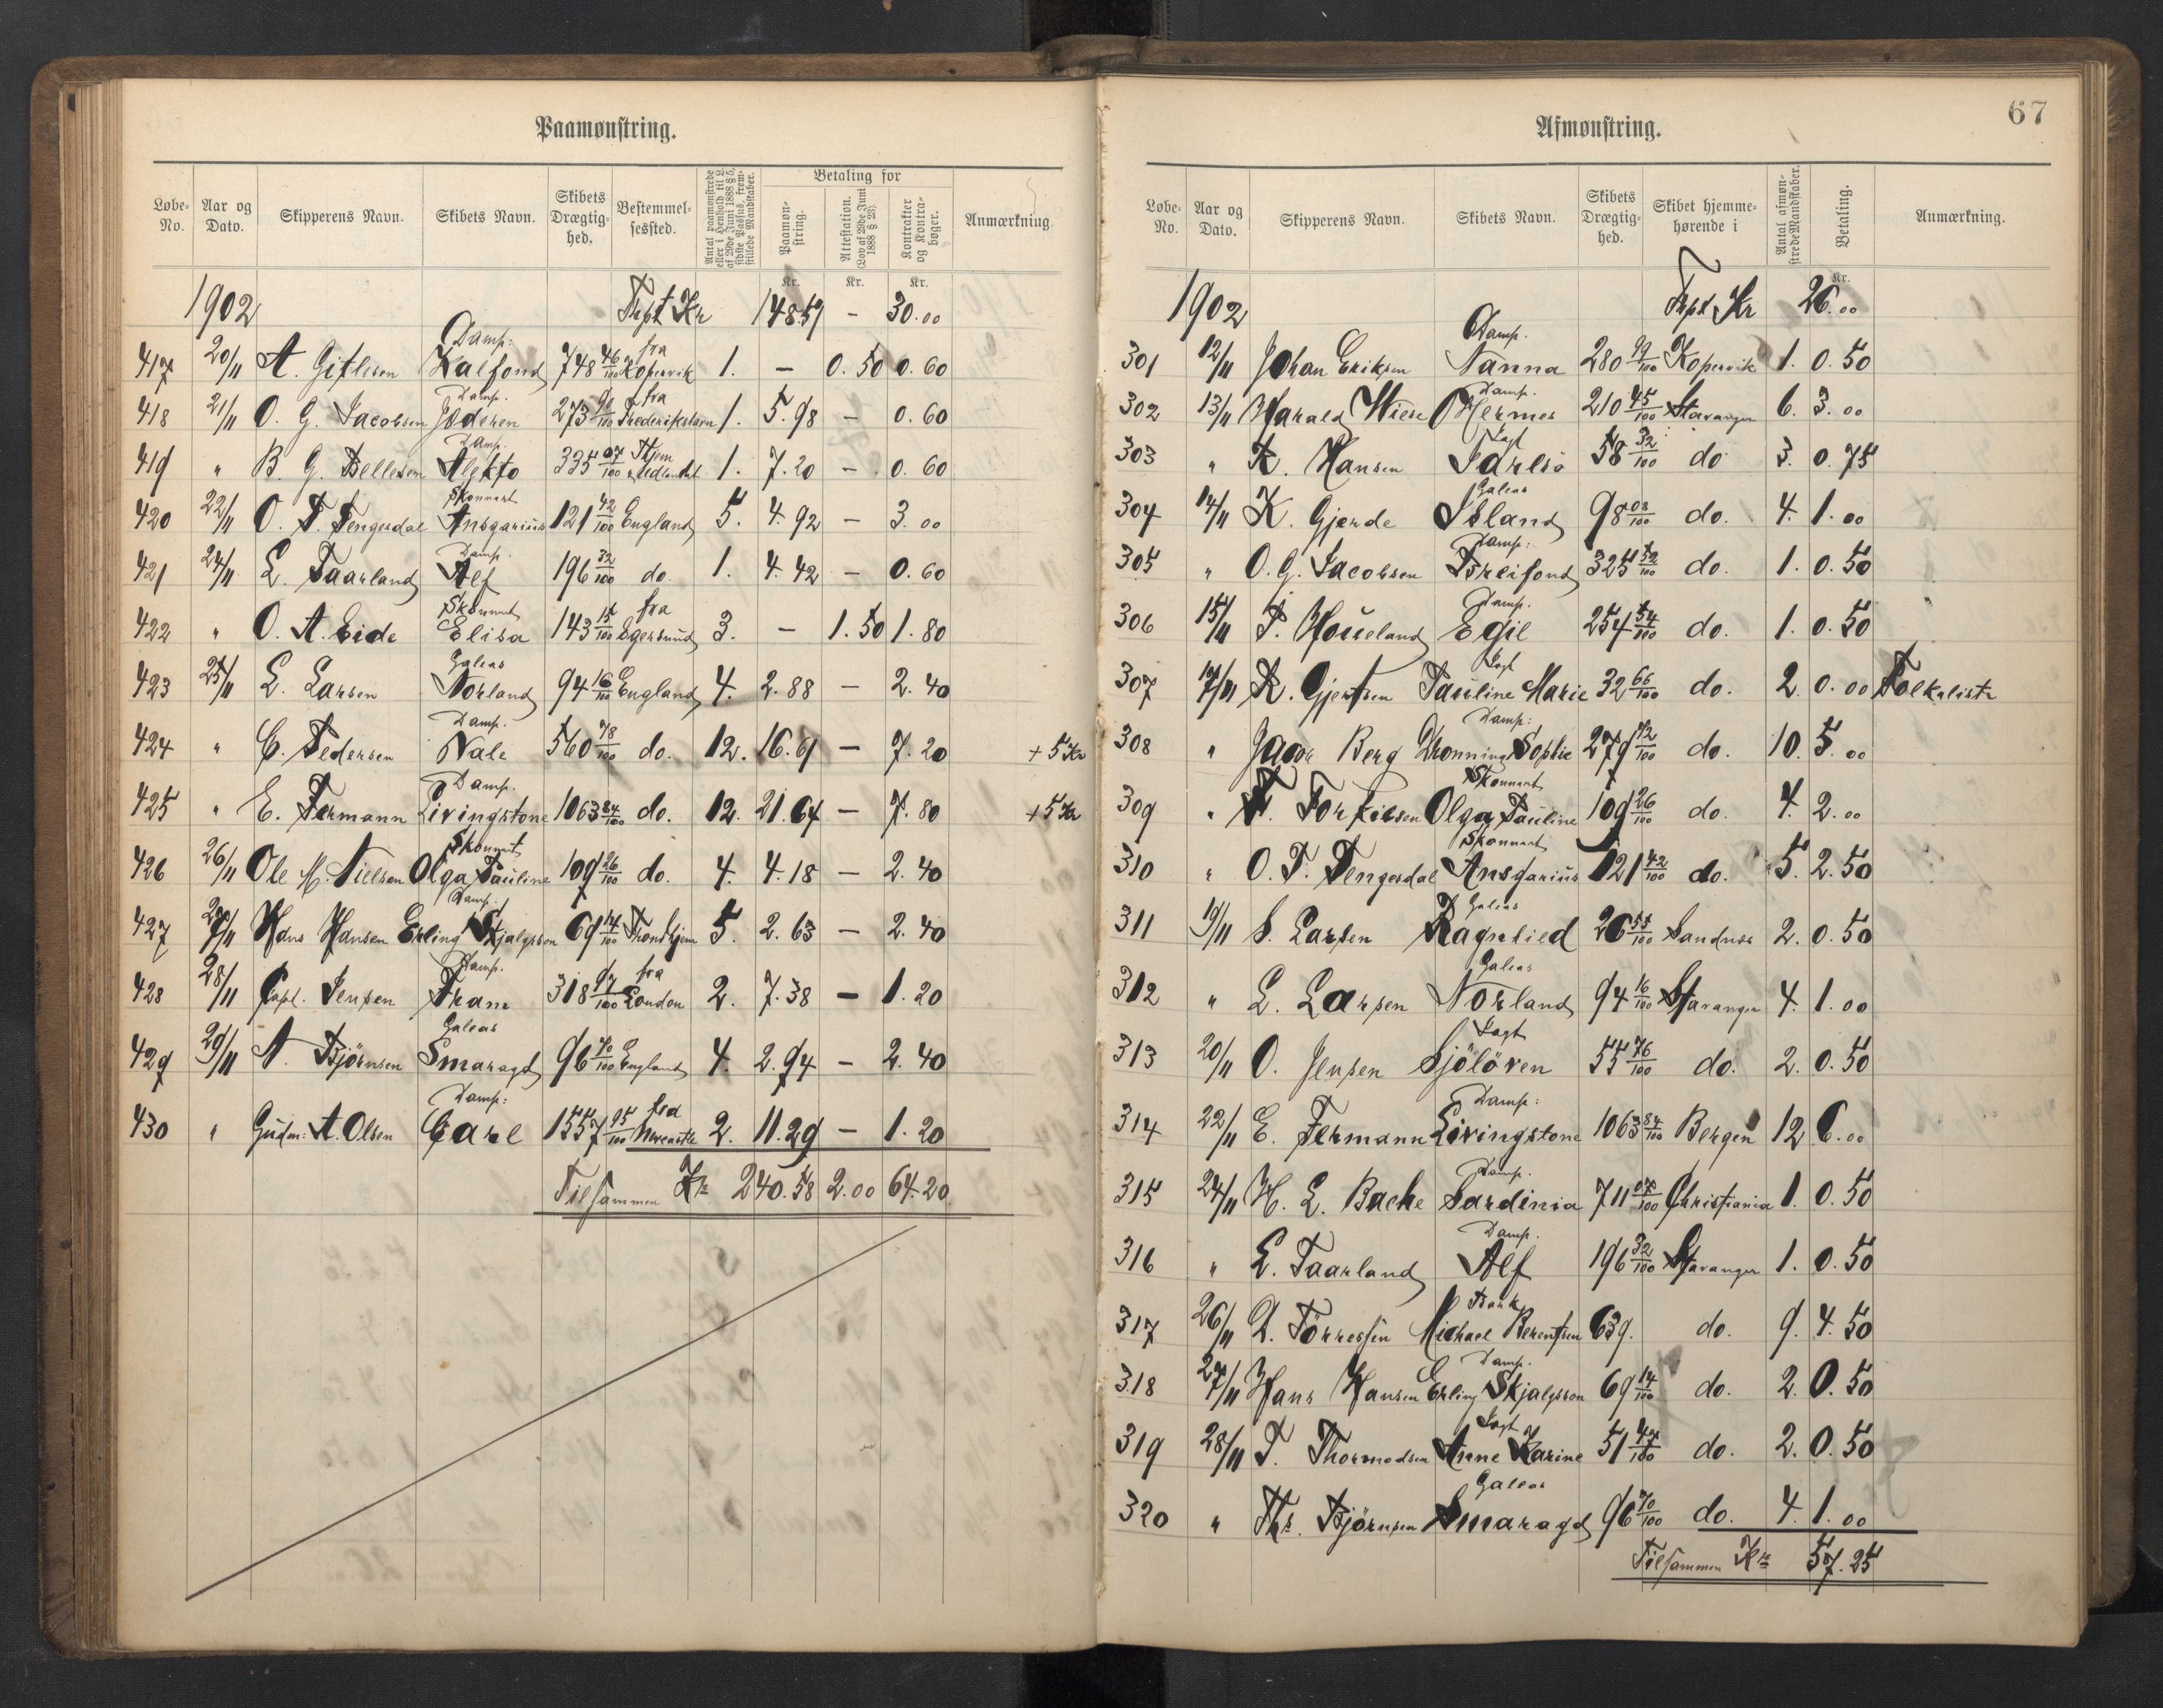 Paamønstring.
Løbe-No. Aar og Dato. Skipperens Navn. Skibets Navn. Skibets Drægtighed. Bestemmelsessted. Antal paamønstrede eller i Henhold til L. af 29de Juni 1888 § 5, sidste Passus, fremstillede Mandskaber. Betaling for Paamønstring. Attestation. (Lov af 29de Juni 1888 § 23). Kontrakter og Kontrabøger. Anmærkning.
Kr. Kr. Kr.
1902 Trpt Kr 148.57 – 30.00
417 20/11 A. Gitlesen Damp: Kalfond 748 46/100 fra Kopervik 1. – 0.50 0.60
418 21/11 O. G. Jacobsen Damp. Jæderen 273 90/100 fra Frederikshavn 1. 5.98 – 0.60
419 " B. G. Bellesen Damp. Alekto 335 07/100 Hjem & Udlandet 1. 7.20 – 0.60
420 22/11 O. T. Tengesdal Skonnert Ansgarius 121 42/100 England 5. 4.92 – 3.00
421 24/11 L. Taarland Damp. Alf 196 32/100 do. 1. 4.42 – 0.60
422 " O. A. Eide Skonnert Elisa 143 15/100 fra Egersund 3. – 1.50 1.80
423 25/11 L. Larsen Galeas Norland 94 16/100 England 4. 2.88 – 2.40
424 " C. Pedersen Damp. Vale 560 78/100 do. 12. 16.61 – 7.20 + 5 Kr
425 " E. Fermann Damp. Livingstone 1063 84/100 do. 12. 21.64 – 7.80 + 5 Kr
426 26/11 Ole M. Nielsen Skonnert Olga Pauline 109 26/100 do. 4. 4.18 – 2.40
427 27/11 Hans Hansen Damp. Erling Skjalgsson 69 14/100 Trondhjem 5. 2.63 – 2.40
428 28/11 Capt. Jensen Damp. Fram 318 97/100 fra London 2. 7.38 – 1.20
429 29/11 N. Bjørnsen Galeas Smaragd 96 70/100 England 4. 2.94 – 2.40
430 " Gudm: A. Olsen Damp: Carl 1557 95/100 fra Newcastle 2. 11.29 – 1.20
Tilsammen Kr 240.58 2.00 64.20
67
Afmønstring.
Løbe-No. Aar og Dato. Skipperens Navn. Skibets Navn. Skibets Drægtighed. Skibet hjemmehørende i Antal afmønstrede Mandskaber. Betaling. Anmærkning.
Kr.
1902 Trpt Kr 26.00
301 12/11 Johan Eriksen Damp. Nanna 280 99/100 Kopervik 1. 0.50
302 13/11 Harald Wiese Damp. Hermes 210 45/100 Stavanger 6. 3.00
303 " K. Hansen Jagt Jarlsö 58 32/100 do 3. 0.75
304 14/11 K. Gjerde Galeas Island 98 08/100 do. 4. 1.00
305 " O. G. Jacobsen Damp: Breifond 325 52/100 do. 1. 0.50
306 15/11 T. Houeland Damp. Egil 254 54/100 do. 1. 0.50
307 17/11 K. Gjertsen Jagt Pauline Marie 32 66/100 do. 2. 0.00 Folkeliste
308 " Jacob Berg Damp: Dronning Sophie 279 72/100 do. 10. 5.00
309 " T. Torkilsen Skonnert Olga Pauline 109 26/100 do. 4. 2.00
310 " O. T. Tengesdal Skonnert Ansgarius 121 42/100 do. 5. 2.50
311 19/11 S. Larsen Galeas Ragnhild 26 55/100 Sandnes 2. 0.50
312 " L. Larsen Galeas Norland 94 16/100 Stavanger 4. 1.00
313 20/11 O. Jensen Jagt Sjöløven 55 76/100 do. 2. 0.50
314 22/11 E. Fermann Damp: Livingstone 1063 84/100 Bergen 12 6.00
315 24/11 H. L. Bache Damp. Sardinia 711 07/100 Christiania 1. 0.50
316 " L. Taarland Damp. Alf 196 32/100 Stavanger 1. 0.50
317 26/11 D. Törressen Bark Michael Berentsen 639. do. 9. 4.50
318 27/11 Hans Hansen Damp. Erling Skjalgsson 69 14/100 do. 2. 0.50
319 28/11 T. Thormodsen Jagt Anne Karine 51 47/100 do. 2. 0.50
320 " Ths. Bjørnsen Galeas Smaragd 96 70/100 do. 4. 1.00
Tilsammen Kr 57.25